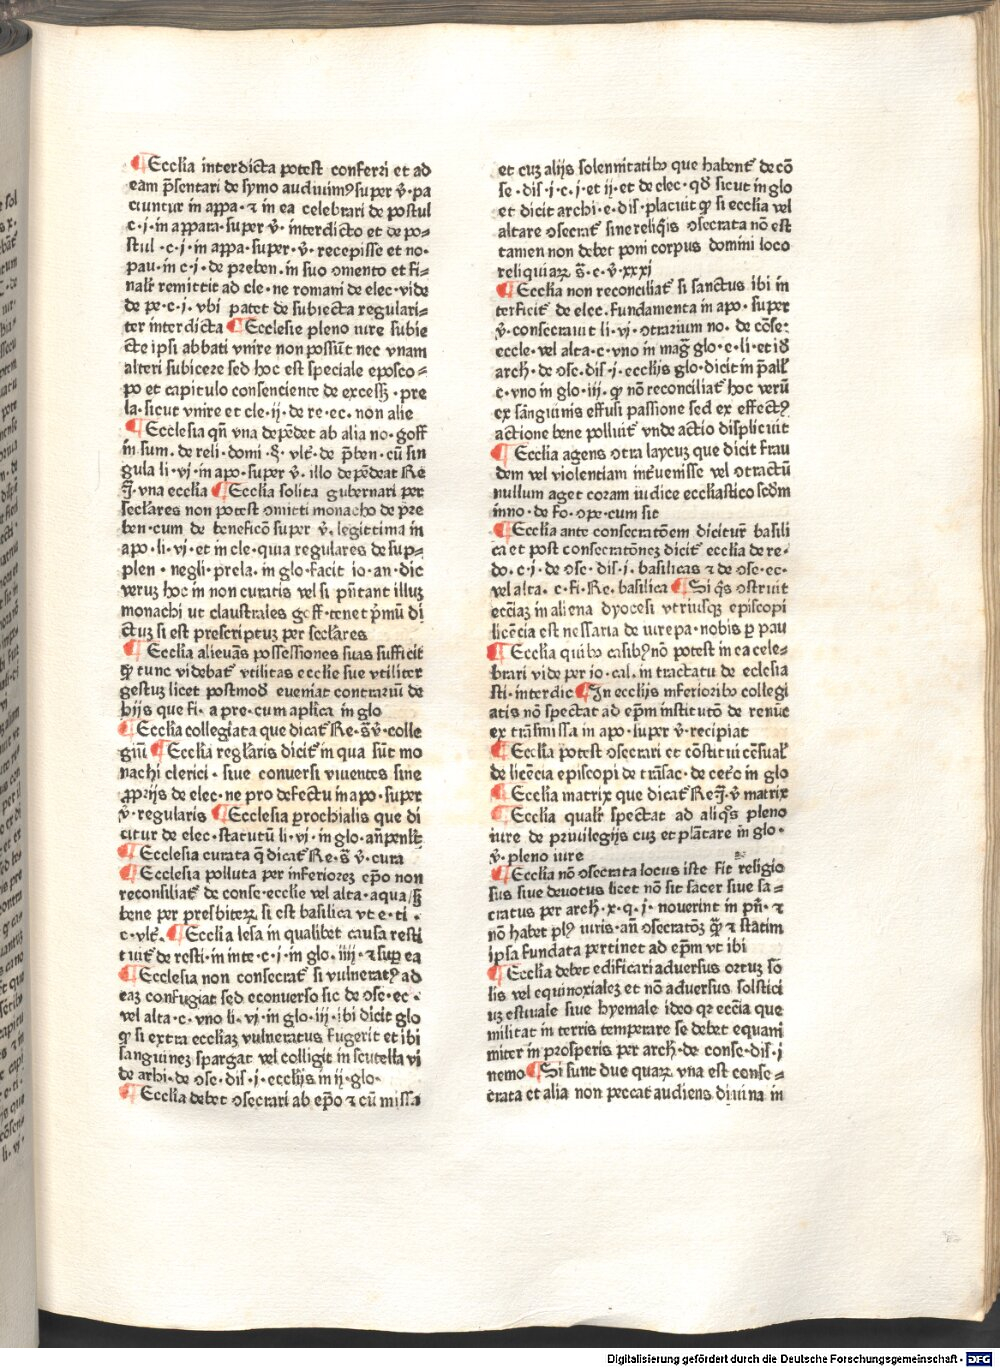 ¶Ecclia interdicta potest conferri et ad
eam p̄sentari de symo audiuimꝰ super v̄· pa
ciuntur in appa· ⁊ in ea celebrari de postul
c· j· in appara· super v̄· interdicto et de po⸗
stul · c· j· in appa· super· v̄· recepisse et no·
pau· in c· j· de preben. in suo omento et fi⸗
nalr̄ remittit ad cle· ne romani de elec· vide
de pe· c· j· vbi patet de subiecta regulari⸗
ter interdicta ¶Ecclesie pleno iure subie
cte ipsi abbati vnire non possūt nec vnam
alteri subicere sed hoc est speciale eposco⸗
po et capitulo consenciente de excess̄· pre
la· sicut vnire et cle· ij· de re· ec. non alie
¶Ecclesia qn̄ vna depēdet ab alia no· goff
in sum. de reli· domi · §· vlt̄· de p̄ben. cū sin
gula li· vj· in apo· super v̄· illo depēdeat Re
j̄· vna ecclia ¶Ecclia solita gubernari per
seclares non potest omitti monacho de pre
ben· cum de beneficō super v̄. legittima in
apo· li· vj· et in cle· quia regulares de sup⸗
plen · negli· prela. in glo· facit io· an· dic
veruz hoc in non curatis vel si pn̄tant illuz
monachi ut claustrales goff· tenet p̄mū di
ctuz si est prescriptuz per seclares
¶Ecclia alieuās possessiones suas sufficit
ꝙ tunc videbat̄ vtilitas ecclie siue vtiliter
gestuz licet postmod̄ eveniat contrariū de
hijs que fi· a pre· cum aplica in glo
¶Ecclia collegiata que dicat̄ Re· s̄ v̄· colle
giū ¶Ecclia reglaris dicit̄ in qua sūt mo
nachi clerici · siue conversi viventes sine
ꝓprijs de elec· ne pro defectu in apo· super
v̄· regularis ¶Ecclesia prochialis que di
citur de elec· statutū li· vj· in glo· an̄penlt̄
¶Ecclesia curata q̄ dicat̄ Re· s̄ v̄· cura
¶Ecclesia polluta per inferiorez epo non
reconsiliat̄ de conse· ecclie vel alta· aqua
bene per presbiterꝝ si est basilica vt e· ti ·
c· vlt̄. ¶Ecclia lesa in qualibet causa resti
tuit̄ de resti· in inte· c· j· in glo· iiij· ⁊ supꝛ ea
¶Ecclesia non consecrat̄ si vulneratꝰ ad
eaz confugiat sed econverso sic de ose· ec ·
vel alta· c· vno li· vj· in glo· iij· ibi dicit glo
ꝙ si extra eccliaz vulneratus fugerit et ibi
sanguinez spargat vel colligit in scutella vi
de arhi· de ose· dis· j· ecclijs in ij· glo·
¶Ecclia debet osecrari ab epō ⁊ cū missa
et cuz alijs solennitatibꝰ que habent̄ de cō
se· dis· j· c· j· et ij· et de elec· qd̄ sicut in glo
et dicit archi· e· dis· placuit ꝙ si ecclia vel
altare osecrat̄ sine reliq̄is osecrata nō est
tamen non debet poni corpus domini loco
reliquiaꝝ s̄· e· v̄· xxxj
¶Ecclia non reconciliat̄ si sanctus ibi in
terficit̄ de elec. fundamenta in apo· super
v̄· consecraiut li· vj· otrarium no· de cōse·
eccle· vel alta· c· vno in mag̃ glo· e· li· et id̄
arch· de ose· dis· j· ecclijs glo· dicit in p̄all̄
c· vno in glo· iij· ꝙ nō reconciliat̄ hoc verū
ex sanguinis effusi passione sed ex effectꝰ
actione bene polluit̄ vnde actio displicuit
¶Ecclia agens otra laycuz que dicit frau
dem vel violentiam int̄uenisse vel otractū
nullum aget coram iudice ecclīastico scdm
inno· de fo· ope· cum sit
¶Ecclia ante consecratōem dicitur basili
ca et post consecratōnez dicit̄ ecclia de re·
do. c· j· de ose· dis· j. basilicas ⁊ de ose· ec·
vel alta. c· fi· Re. basilica ¶Si q̄s ostruit
eccīaz in aliena dyocesi vtriusqꝫ episcopi
licēcia est nessaria de iurepa· nobis p pau
¶Ecclia quibꝰ casibꝰ nō potest in ea cele·
brari vide per io· cal. in tractatu de eclesia
sti· interdic ¶In ecclijs inferioribꝰ collegi
atis nō spectat ad ep̄m institutō de renūc
ex trāsmissa in apo· super v̄· recipiat
¶Ecclia potest osecrari et cōstitui cēsual̄
de licēcia episcopi de trāsac· de cet̄o in glo
¶Ecclia matrix que dicat̄ Re j̄· v̄ matrix
¶Ecclia qualr̄ spectat ad aliq̄s pleno
iure de priuilegijs cuz et plātare in glo·
v̄· pleno iure
¶Ecclia nō osecrata locus iste fit religio
sus siue devotus licet nō sit sacer siue sa⸗
cratus per arch· x· q· j· noverint in pn̄· ⁊
nō habet plꝰ iuris· an̄ osecratōꝫ ꝙ̄ ⁊ statim
ipsa fundata pertinet ad ep̄m vt ibi
¶Ecclia debet edificari adversus ortuz so
lis vel equinoxialez et nō adversus solstici
uz estiuale siue hyemale ideo qr eccīa que
militat in terris temperare se debet equani
miter in prosperis per arch· de conse· dis· j
nemo ¶Si sunt due quaꝝ vna est conse⸗
crata et alia non peccat audiens divina in
Digitalisierung gefördert durch die Deutsche Forschungsgemeinschaft - DFG